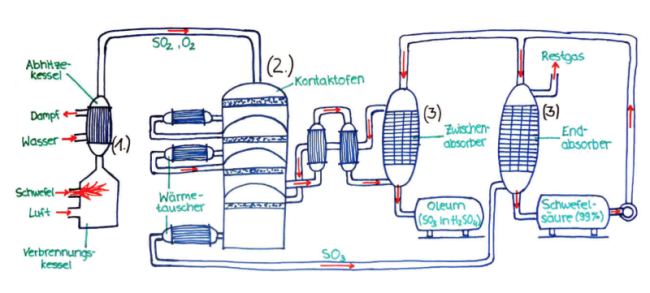 SO₂, O₂
(2.)
Kontaktofen
Restgas
Abhitze-
kessel
Dampf
Wasser
(1.)
(3)
Zwischen-
absorber
(3)
End-
absorber
Schwefel
Luft
Verbrennungs-
kessel
Wärme-
tauscher
Oleum
(SO₃ in H₂SO₄)
Schwefel-
säure (99%)
SO₃